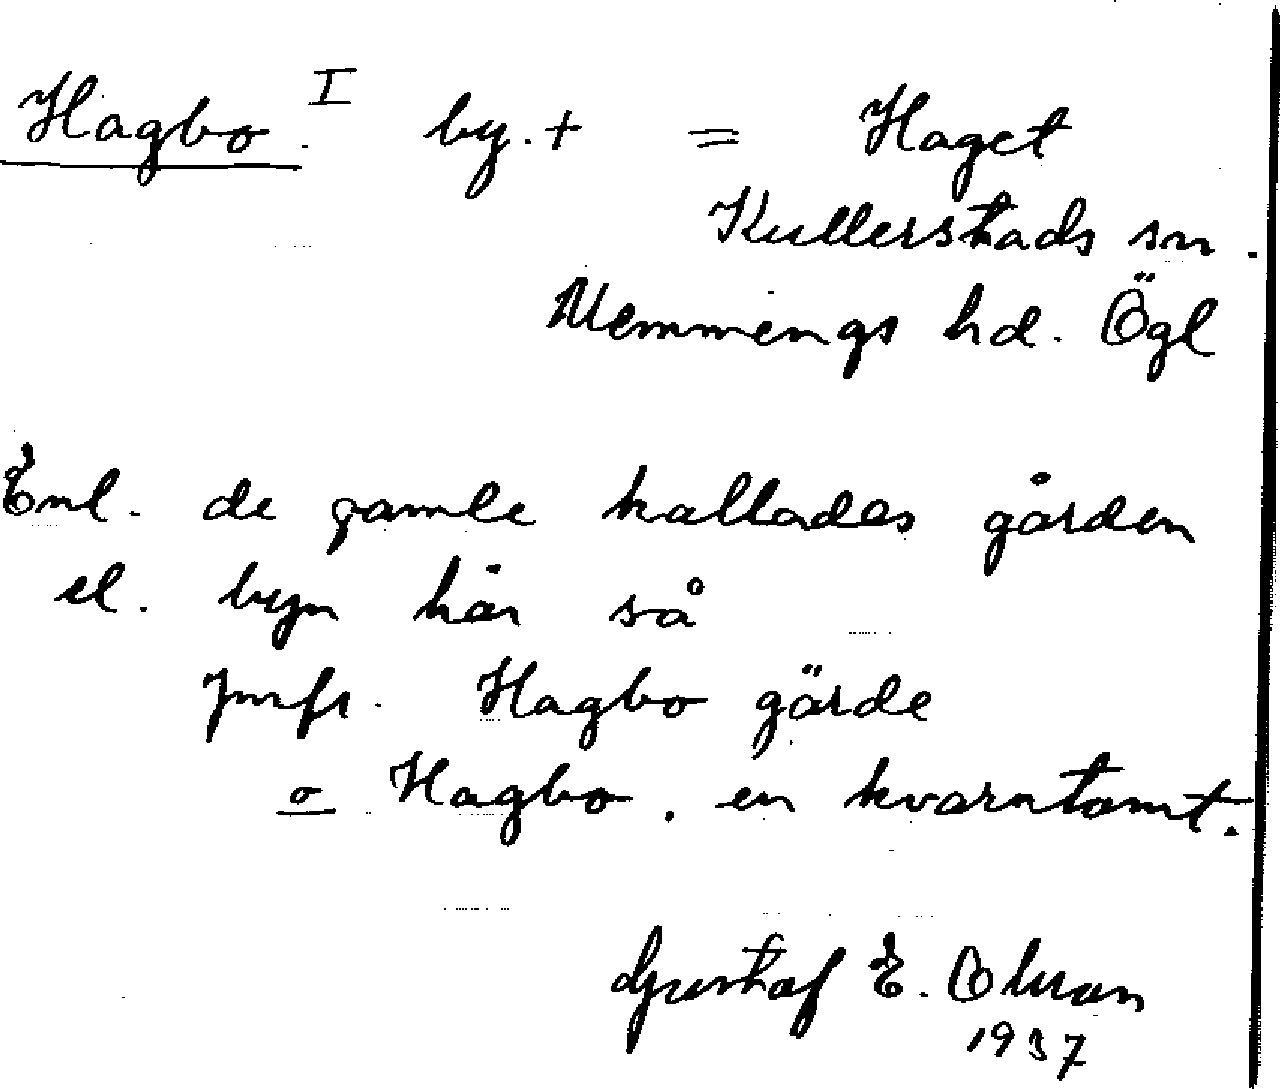 Hagbo I by. + = Haget
Kullerstads sn.
Memmings hd. Ögl
Enl. de gamle kallades gården
el. byn här så
Jmfr. Hagbo gärde
o Hagbo. en kvarntomt.
Gustaf E.
1937